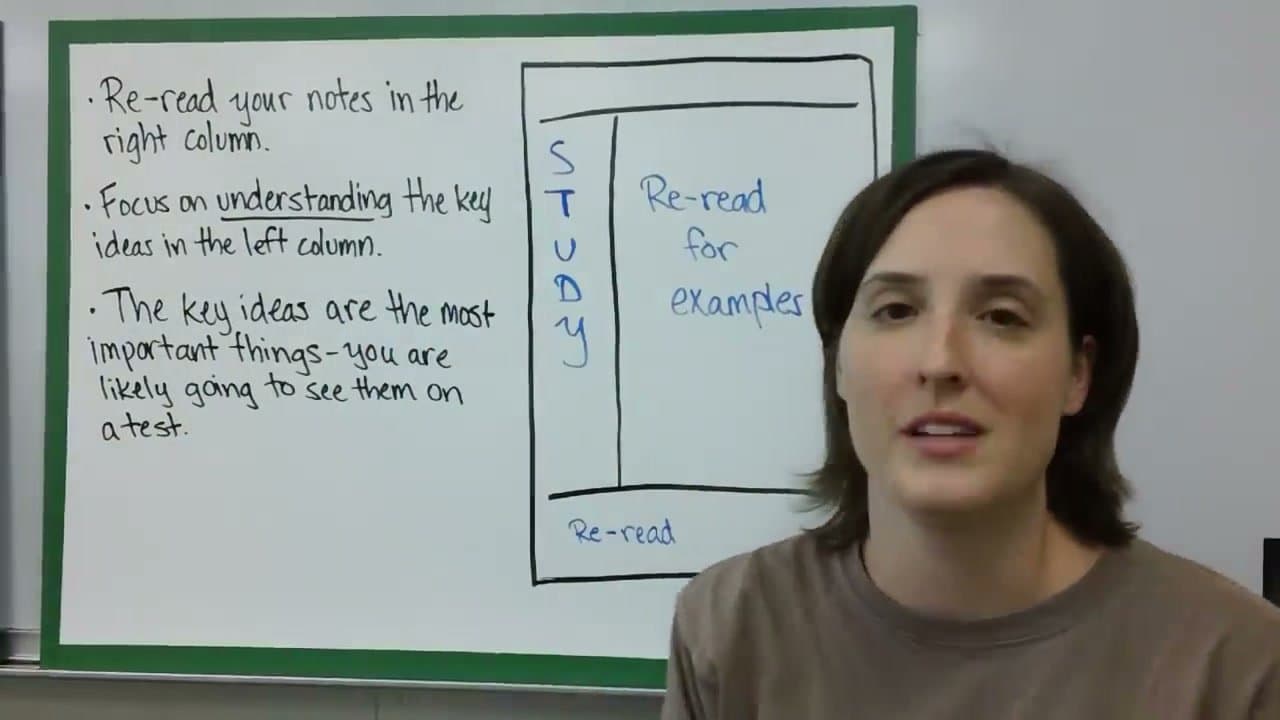 · Re-read your notes in the
right column.
· Focus on understanding the key
ideas in the left column.
· The key ideas are the most
important things-you are
likely going to see them on
a test.
S
T
U
D
Y
Re-read
for
examples
Re-read